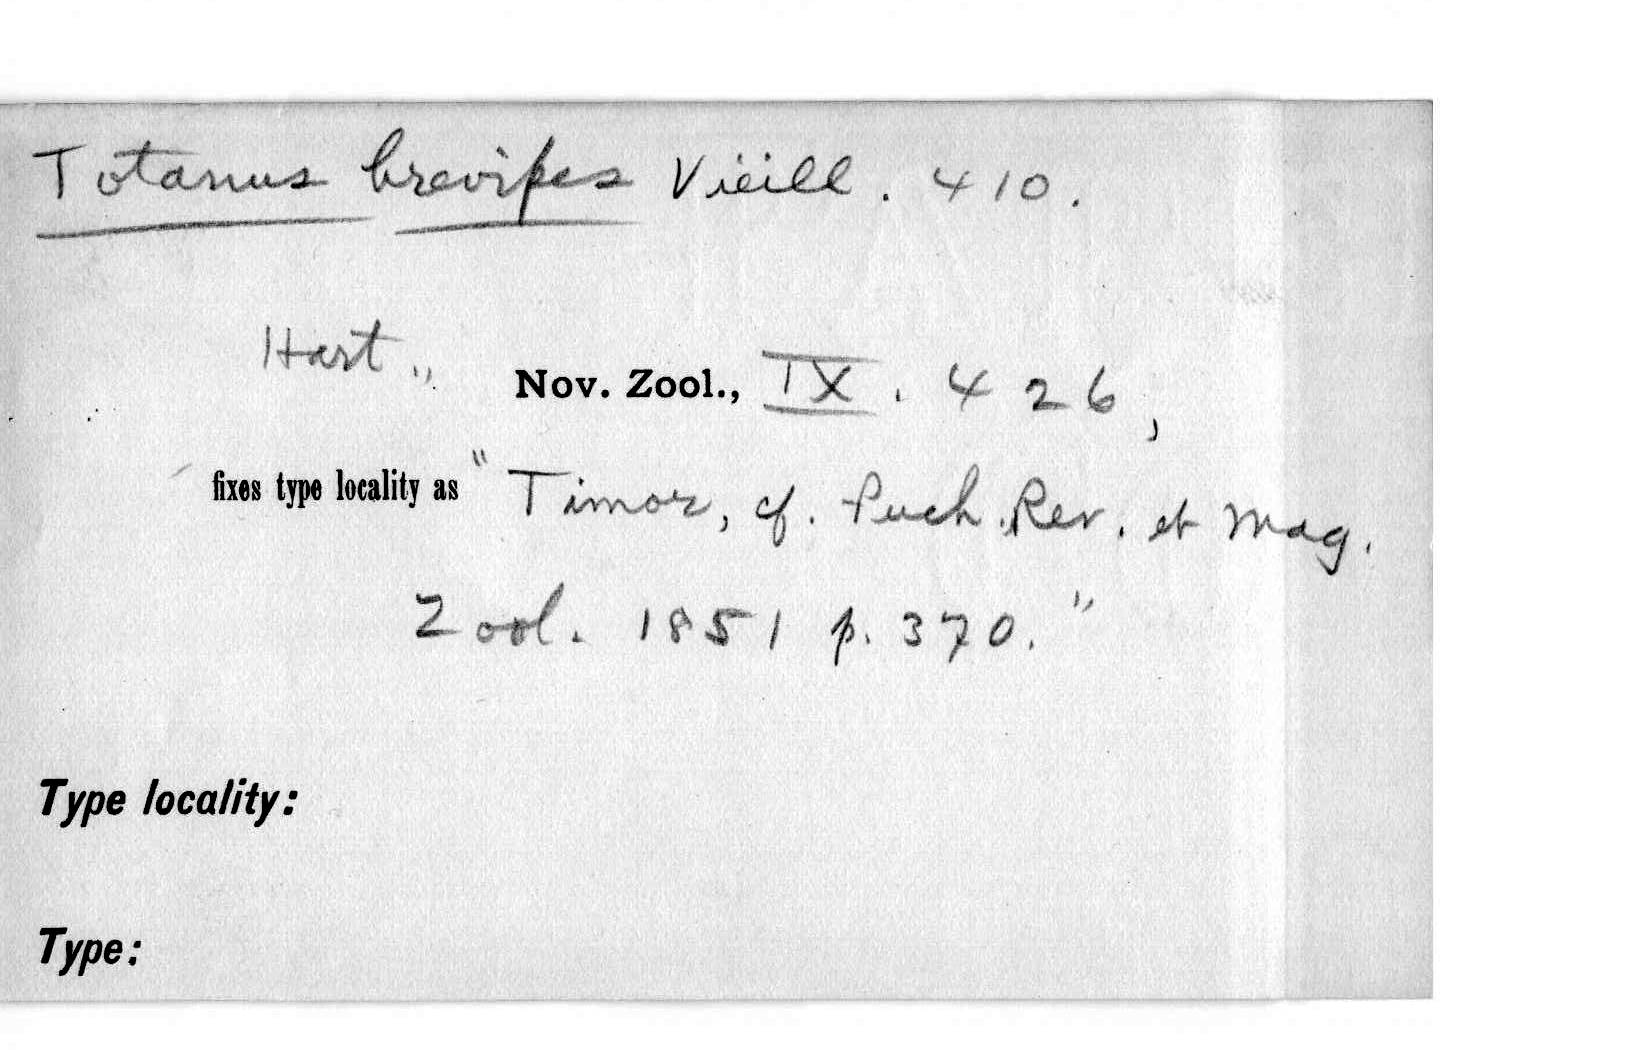 Totanus brevipes Vieill. 410.
Hart., Nov. Zool., IX. 426,
fixes type locality as "Timor, cf. Puch. Rev. et Mag.
Zool. 1851 p. 370."
Type locality:
Type: